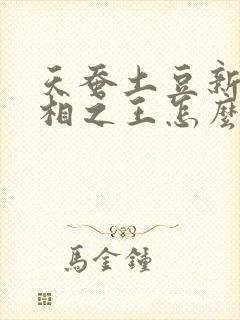 天蚕土豆新
相之王怎麼
馬金鐘